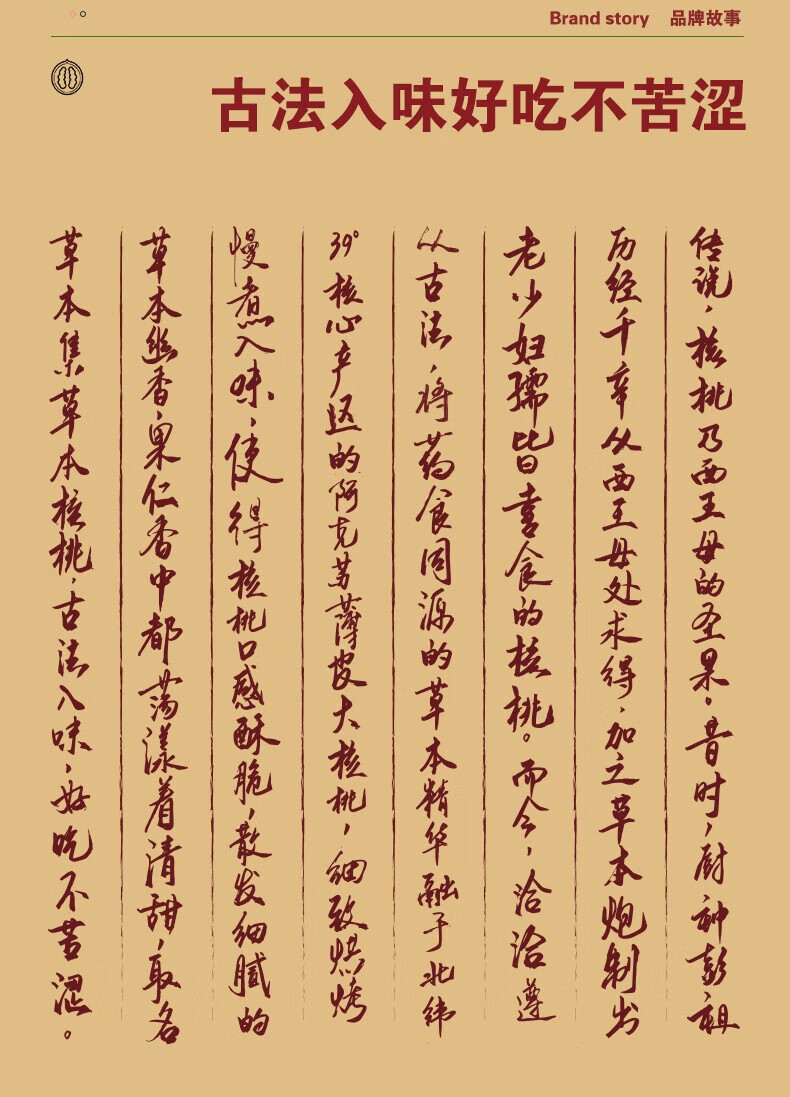 Brand story 品牌故事
古法入味好吃不苦涩
传说，核桃乃西王母的圣果。昔时，厨神彭祖
历经千辛从西王母处求得，加之草本炮制出
老少妇孺皆喜食的核桃。而今，洽洽遵
从古法，将药食同源的草本精华融于北纬
39°核心产区的阿克苏薄皮大核桃，细致烘烤
慢煮入味，使得核桃口感酥脆，散发细腻的
草本幽香，果仁香中都荡漾着清甜，取名
草本集草本核桃，古法入味，好吃不苦涩。